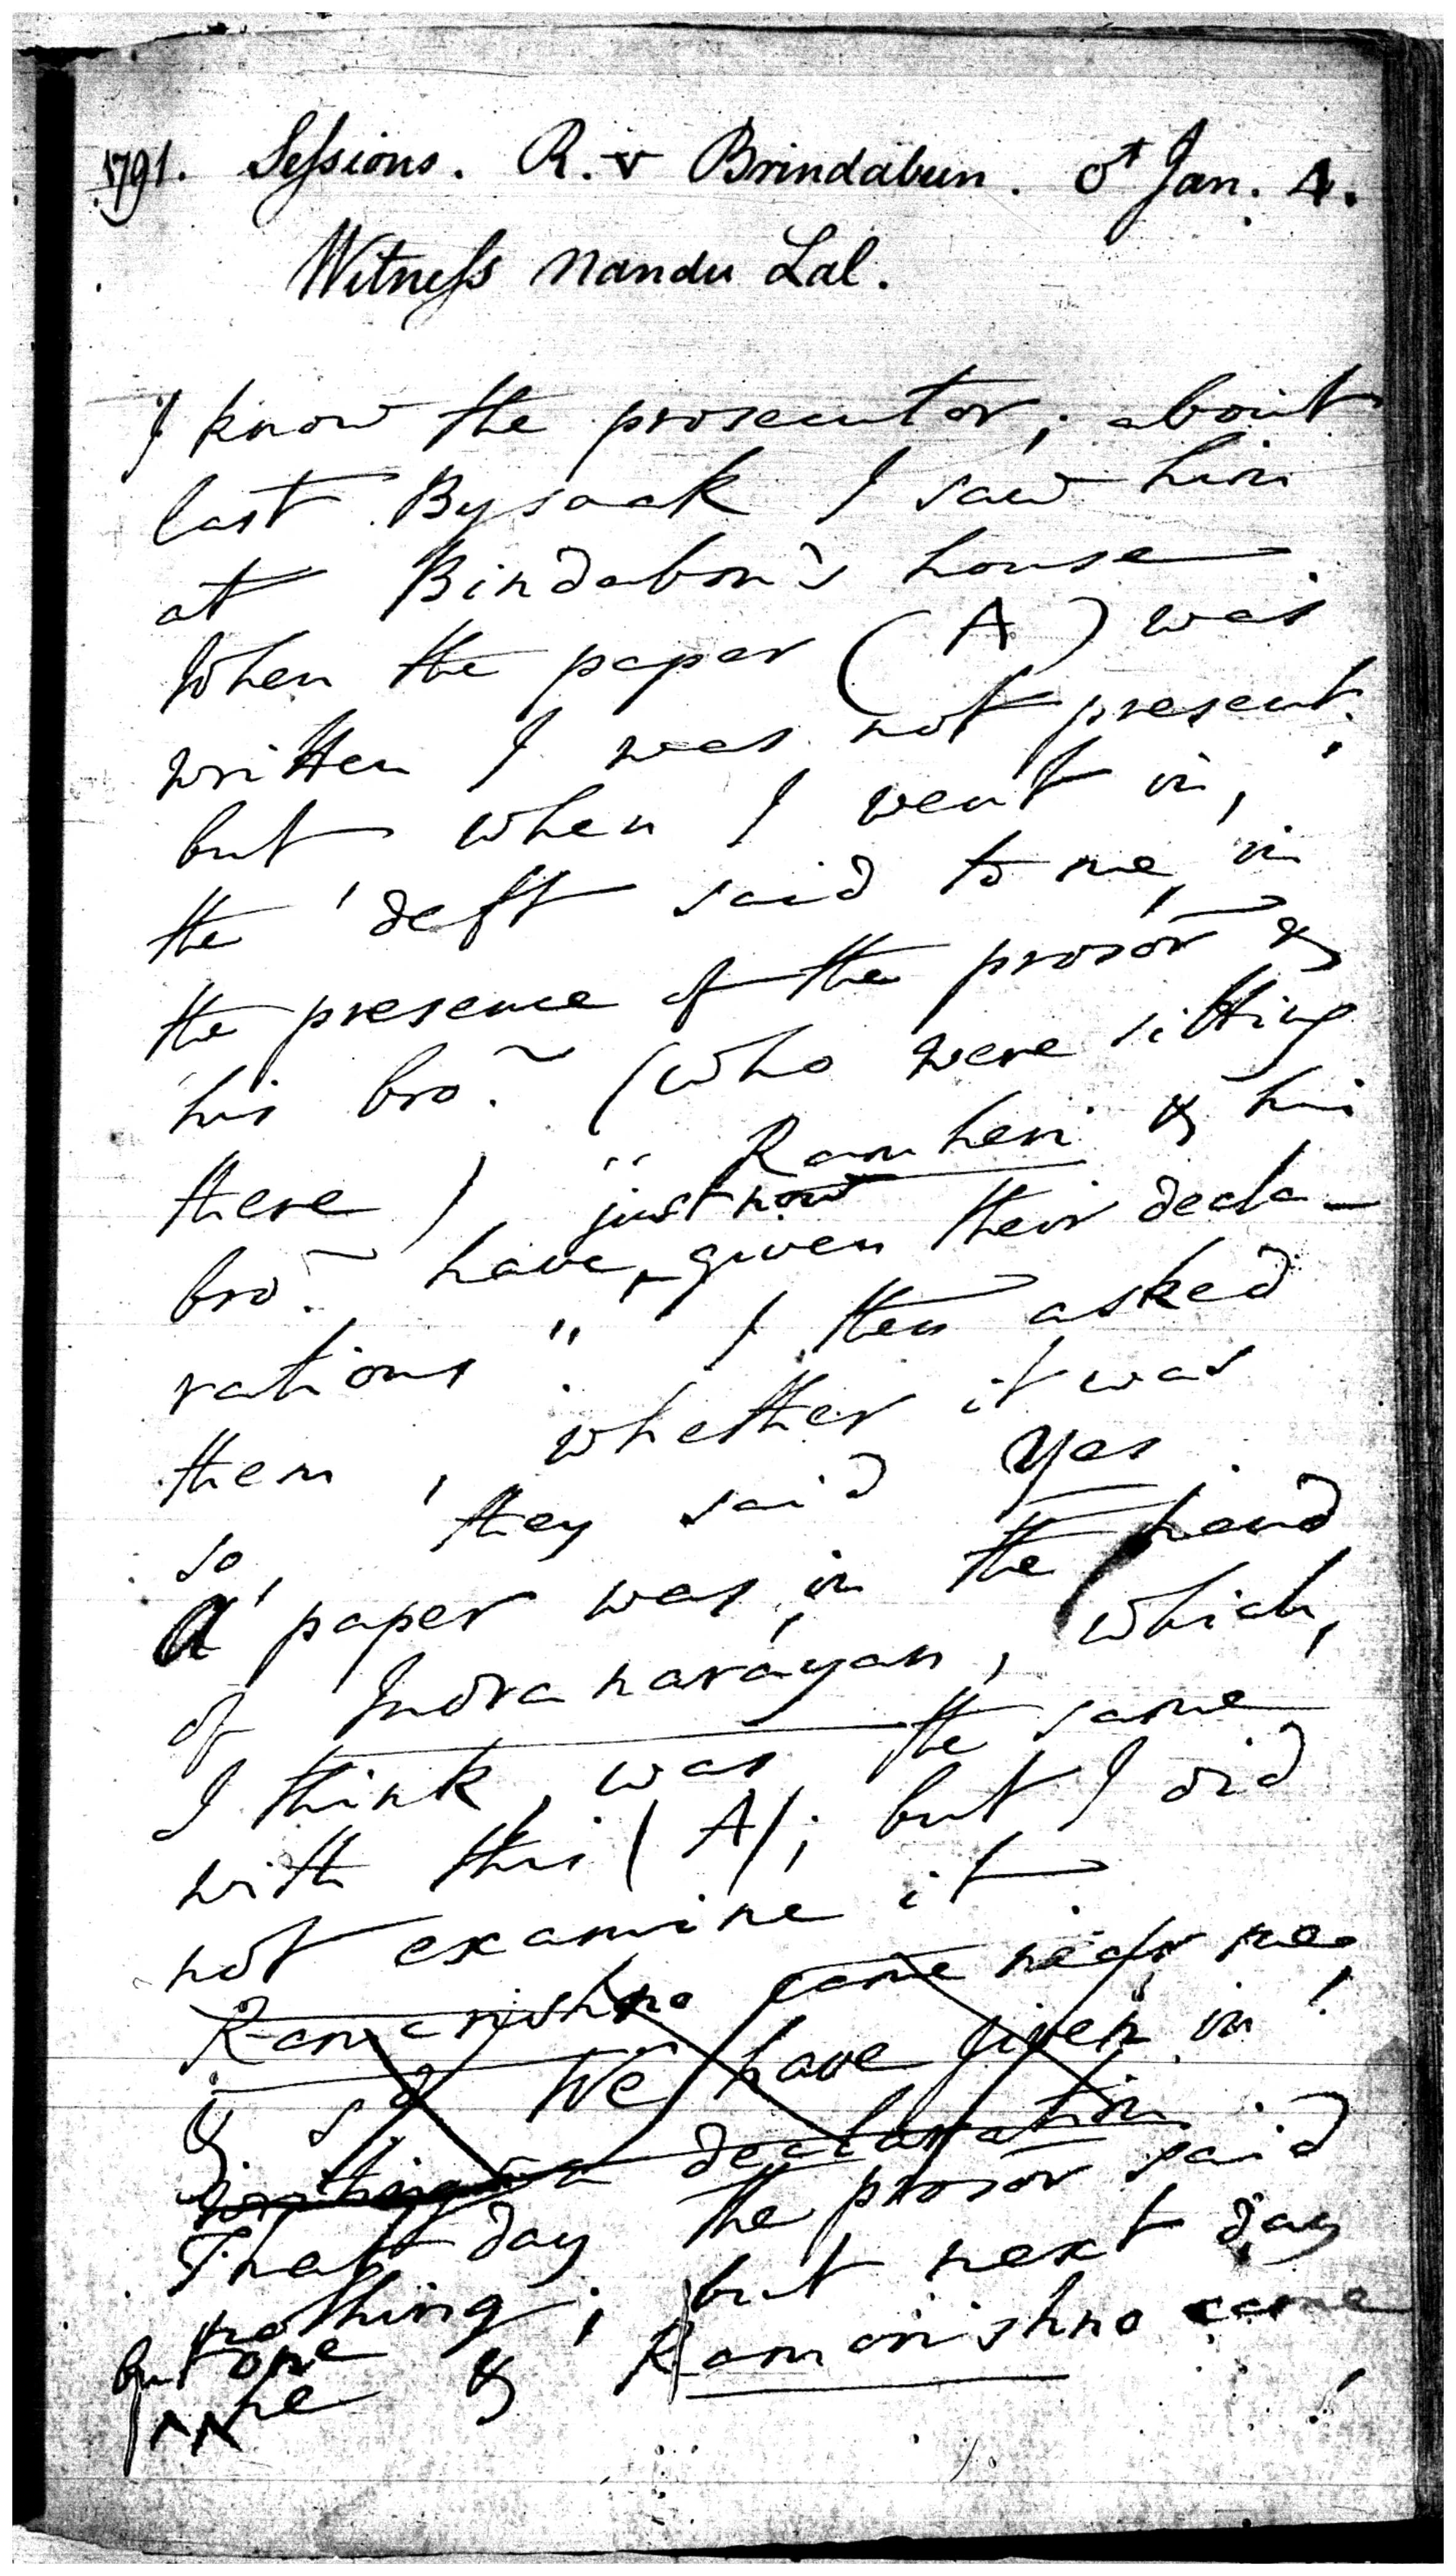 1791. Sessions. R. v Brindabun. Jan. 4.
Witness Nandu Lal.
I know the prosecutor; about
last Bysaak I saw him
at Bindabon's house.
When the paper (A) was
written I was not present,
but when I went in,
the deft said to me, in
the presence of the prosor &
his bro. (who were sitting
there) "Ramheri & his
just now
bro. have given their decla-
rations". I then asked
them, whether it was
so, they said Yes.
A paper was in the hand
of Indranarayan, which,
I think, was the same
with this (A); but I did
not examine it
Ramcrishno came near me,
& sd We have given in
writing a declaration
That day the prosor said
nothing; but next day
but one
he & Ramcrishno came